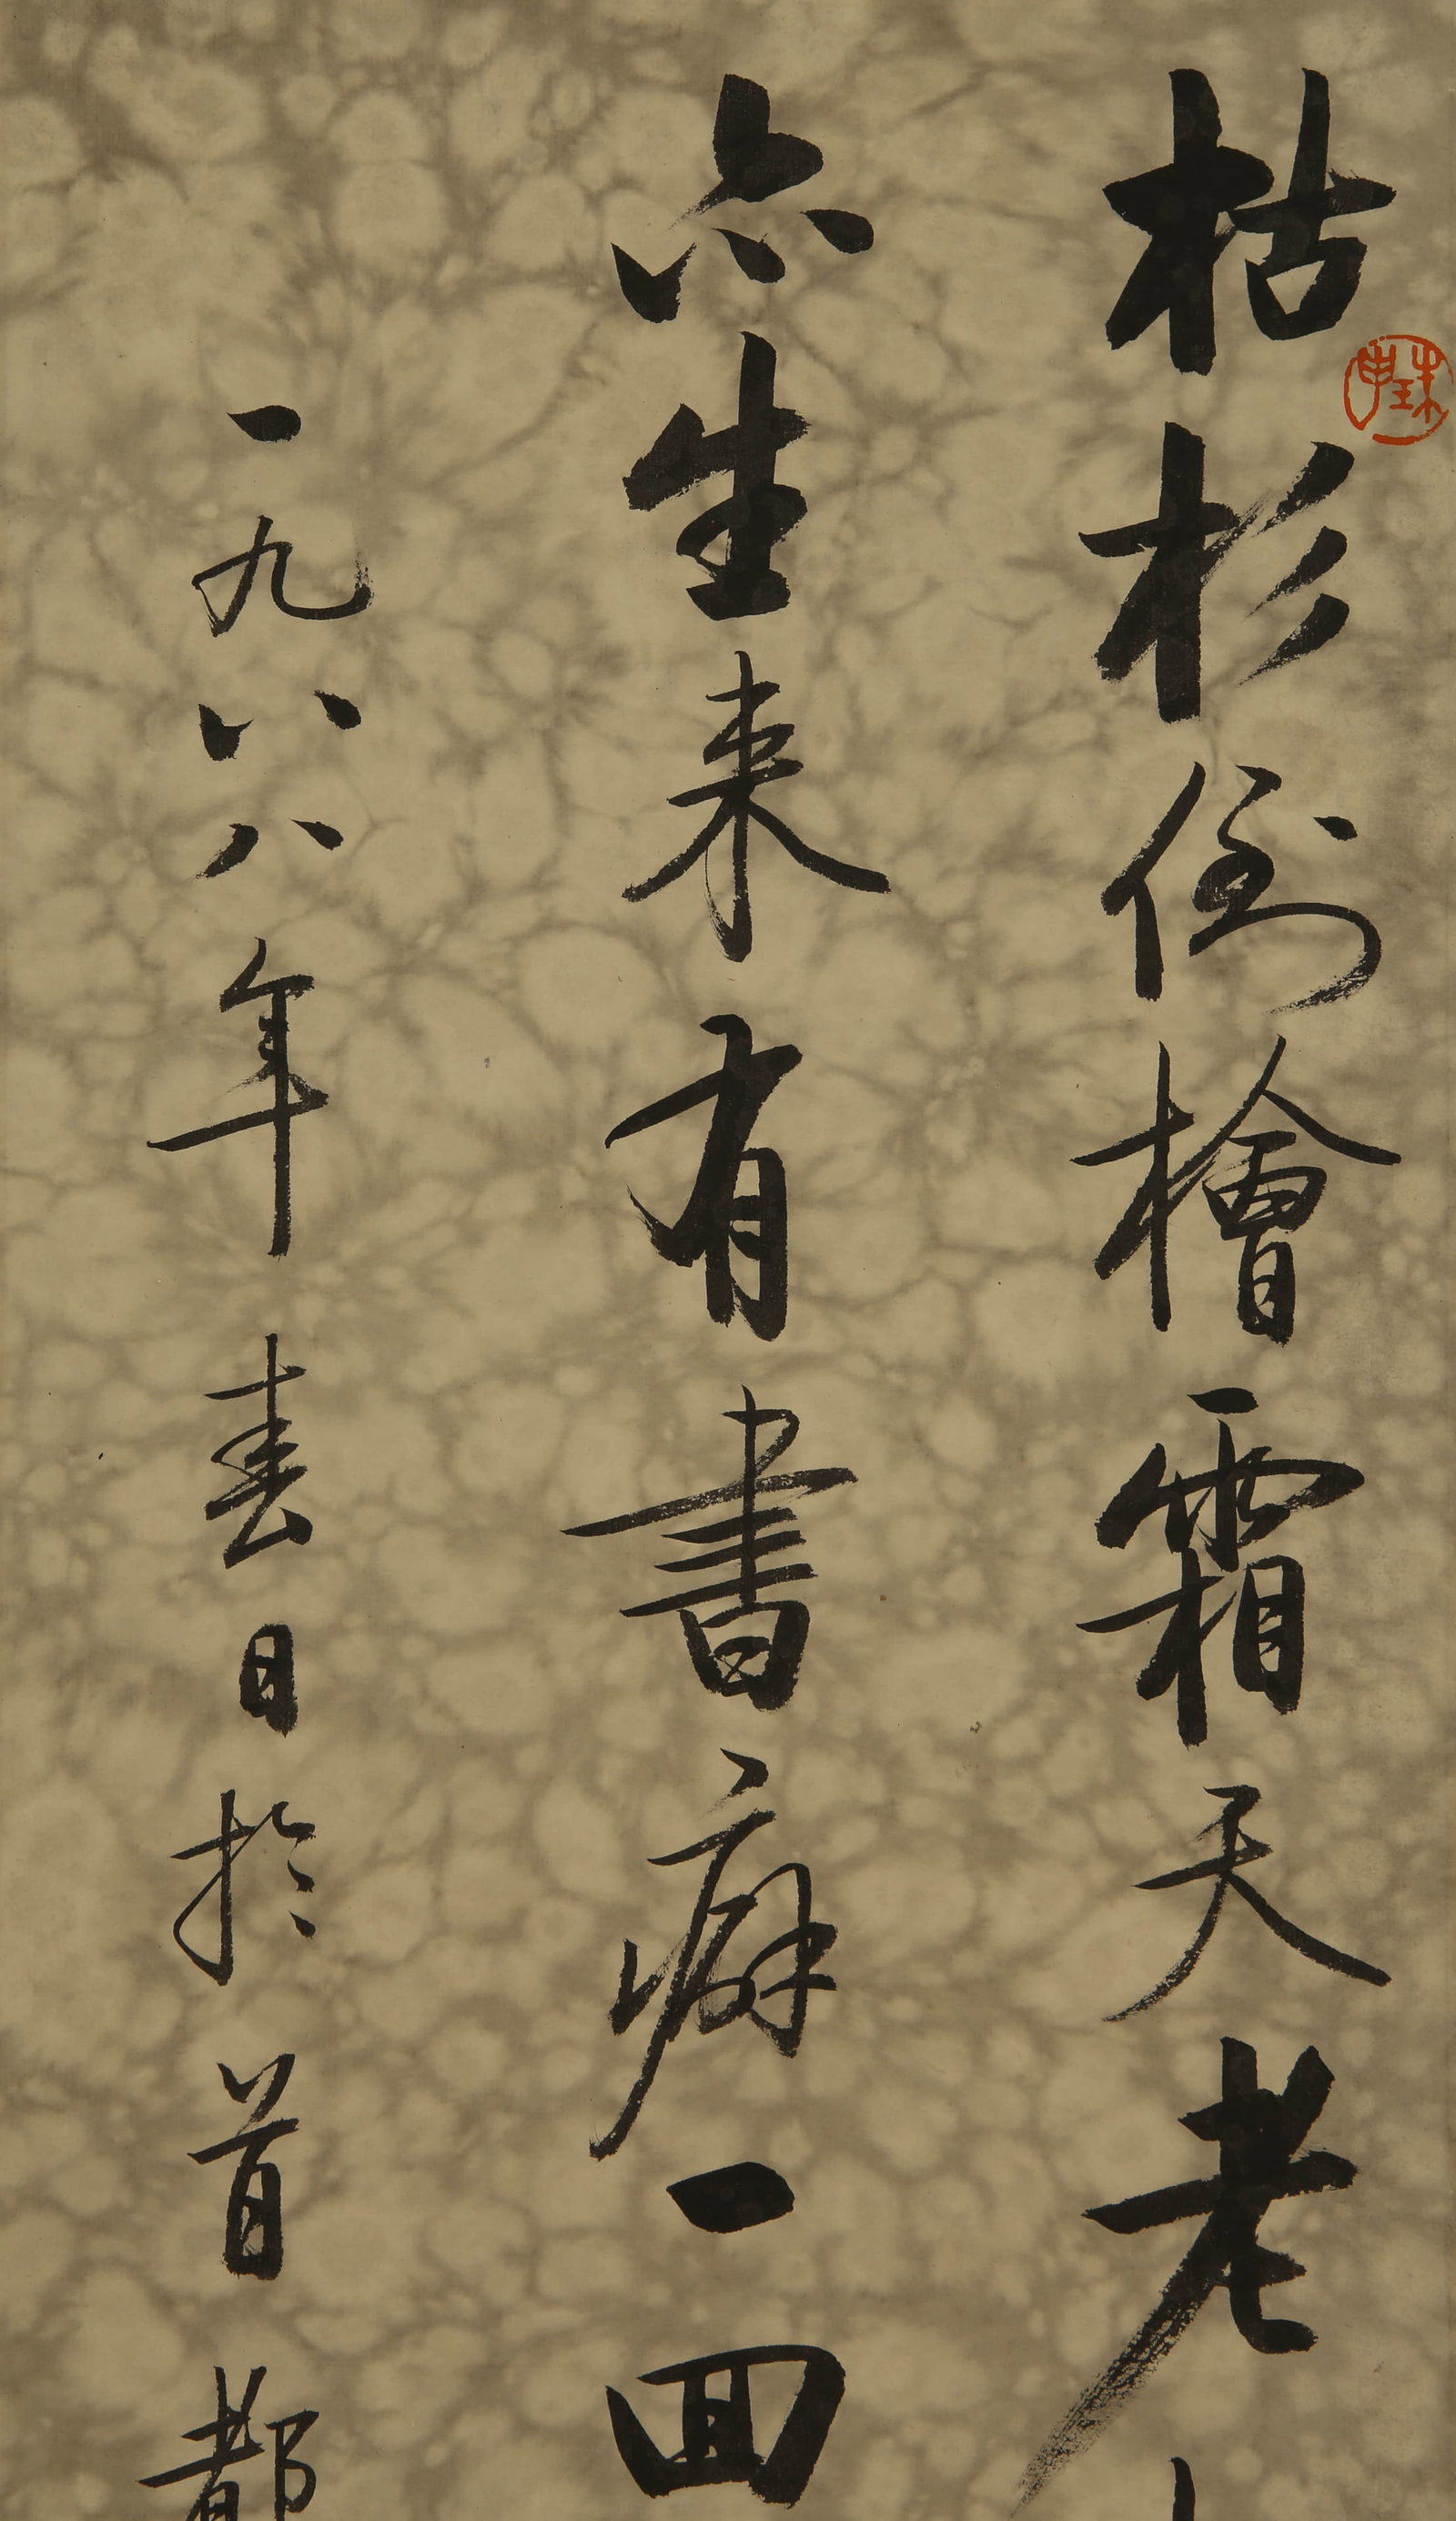 枯杉倒檜霜天老
亦生来有書癖一回
一九八八年春日於首都